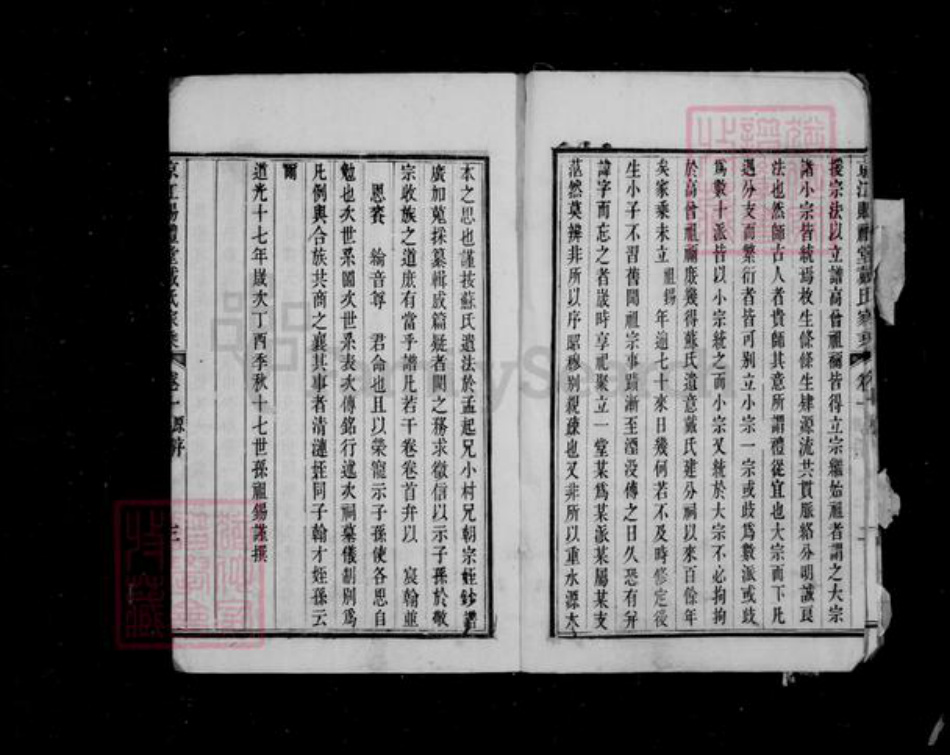 援宗法以立譜高曾祖禰皆得立宗繼始祖者謂之大宗
諸小宗皆統焉枚生條條生肄源流共貫脈絡分明誠良
法也然師古人者貴師其意所謂禮從宜也大宗而下凡
遇分支而繁衍者皆可別立小宗一宗或歧爲數派或歧
爲數十派皆以小宗統之而小宗又統於大宗不必拘拘
於高曾祖禰庶幾得蘇氏遺意戴氏建分祠以來百餘年
矣家乘未立 祖錫年逾七十來日幾何若不及時修定後
生小子不習舊聞祖宗事蹟漸至湮没傳之日久恐有弁
諱字而忘之者歲時享祀聚立一堂某爲某派某屬某支
茫然莫辨非所以序昭穆别親疎也又非所以重水源木
本之思也謹按蘇氏遺法於孟起兄小村兄朝宗姪鈔譜
廣加蒐採纂輯成篇疑者闕之務求徵信以示子孫於敬
宗收族之道庶有當乎譜凡若干卷卷首弁以 宸翰並
恩賚 綸音尊 君命也且以榮寵示子孫使各思自
勉也次世系圖次世系表次傳銘行述次祠墓儀制别爲
凡例與合族共商之襄其事者清漣姪同子翰才姪孫云
爾
道光十七年歲次丁酉季秋十七世孫祖錫謹撰
卷一 源浒 三